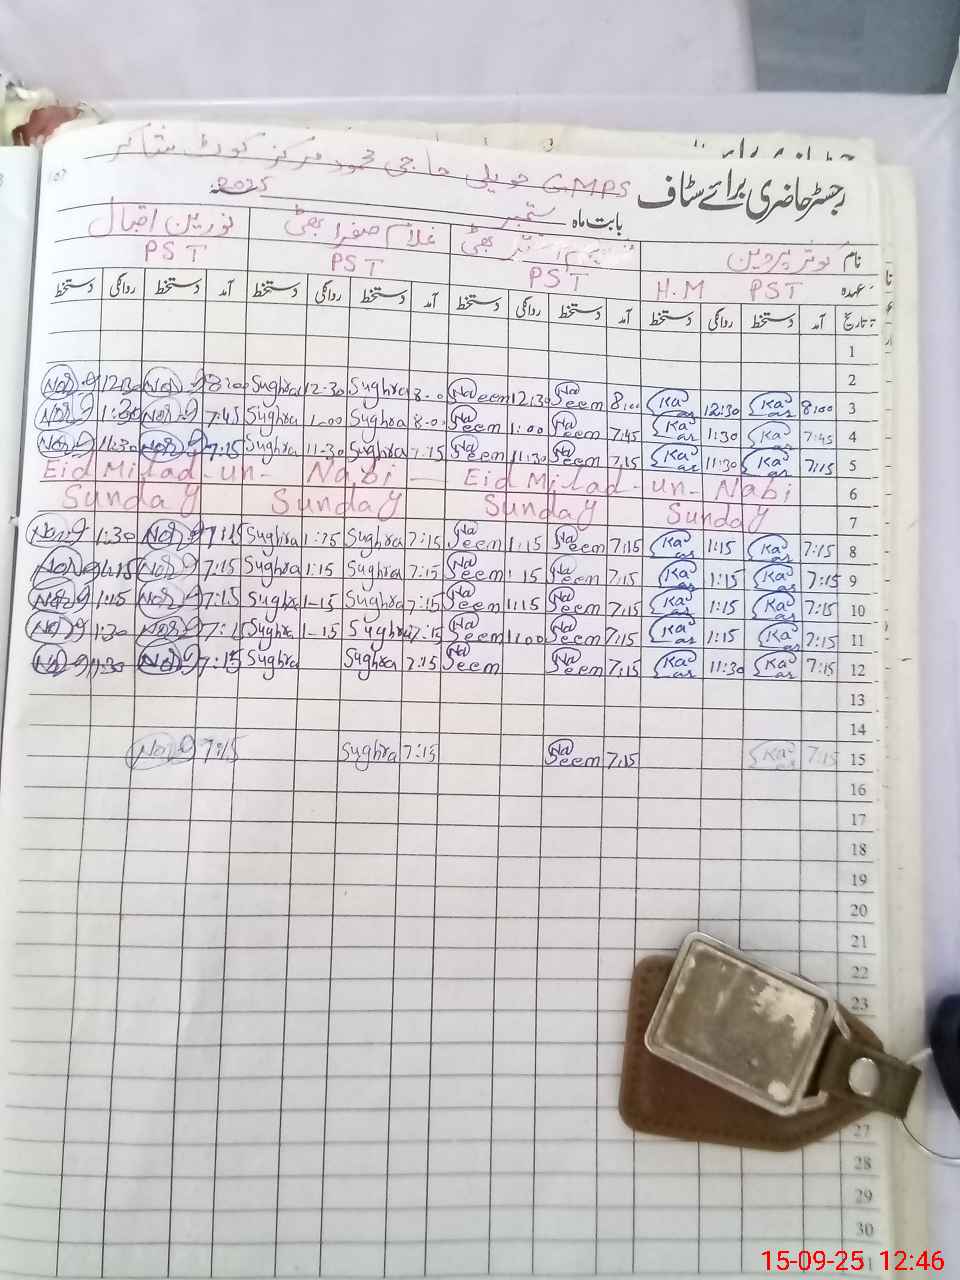 GMPS حویلی حاجی محمود مرکز کوٹ شاکر
رجسٹر حاضری برائے سٹاف
بابت ماہ ستمبر 2025ء
نام کوثر پروین بھٹی غلام صغرا بھٹی نورین اقبال
عہدہ PST H.M PST PST PST
تاریخ آمد دستخط روانگی دستخط آمد دستخط روانگی دستخط آمد دستخط روانگی دستخط آمد دستخط روانگی دستخط
1
2
3 8:00 Kausar 12:30 Kausar 8:00 Naseem 12:30 Naseem 8:00 Sughra 12-30 Sughra 8:00 12:30
4 7:45 Kausar 1:30 Kausar 7:45 Naseem 1:00 Naseem 8:0 Sughra 1-00 Sughra 7:45 1:30
5 7:15 Kausar 11:30 Kausar 7:15 Naseem 11:30 Naseem 7:15 Sughra 11-30 Sughra 7:15 11:30
6 Eid Milad-un-Nabi — Eid Milad-un-Nabi
7 Sunday Sunday Sunday Sunday
8 7:15 Kausar 1:15 Kausar 7:15 Naseem 1:15 Naseem 7:15 Sughra 1:15 Sughra 7:15 1:30
9 7:15 Kausar 1:15 Kausar 7:15 Naseem 1:15 Naseem 7:15 Sughra 1:15 Sughra 7:15 1:15
10 7:15 Kausar 1:15 Kausar 7:15 Naseem 1:15 Naseem 7:15 Sughra 1-15 Sughra 7:15 1:15
11 7:15 Kausar 1:15 Kausar 7:15 Naseem 1:00 Naseem 7:15 Sughra 1-15 Sughra 7:15 1:30
12 7:15 Kausar 11:30 Kausar 7:15 Naseem Naseem 7:15 Sughra Sughra 7:15 11:30
13
14
15 7:15 Kausar 7:15 Naseem 7:15 Sughra 7:15
16
17
18
19
20
21
22
23
27
28
29
30
31
15-09-25 12:46